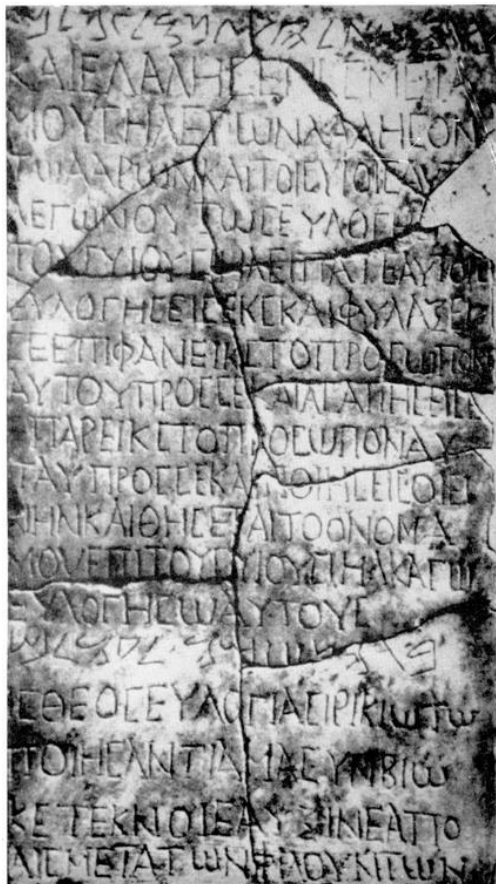 ΚΑΙ ΕΛΑΛΗСΕΝ ΚС ΜΕΤΑ
ΜΟΥСΗ ΛΕΓΩΝ ΛΑΛΗСΟΝ
ΤΩ ΑΑΡΩΝ ΚΑΙ ΤΟΙС ΥΙΟΙС ΑΥΤ
ΛΕΓΩΝ ΟΥΤΩС ΕΥΛΟΓ
ΤΟΥС ΥΙΟΥС ΙΗΛ ΕΙΠΑΤΕ ΑΥΤΟΙ
ΕΥΛΟΓΗСΕΙ СΕ ΚС ΚΑΙ ΦΥΛΑΞΕΙ
СΕ ΕΠΙΦΑΝΕΙ ΚС ΤΟ ΠΡΟСΩΠΟΝ
ΑΥΤΟΥ ΠΡΟС СΕ ΚΑΙ ΑΓΑΠΗСΕΙ СΕ
ΕΠΑΡΕΙ ΚС ΤΟ ΠΡΟСΩΠΟΝ ΑΥ
ΤΟΥ ΠΡΟС СΕ ΚΑΙ ΠΟΙΗСΕΙ СΟΙ ΕΙ
ΡΗΝΗΝ ΚΑΙ ΘΗСΕΤΑΙ ΤΟ ΟΝΟΜΑ
ΜΟΥ ΕΠΙ ΤΟΥС ΥΙΟΥС ΙΗΛ ΚΑΓΩ
ΕΥΛΟΓΗСΩ ΑΥΤΟΥС
ΙС ΘΕΟС ΕΥΛΟΓΙΑ СΙΡΙΚΙΩ ΤΩ
ΠΟΙΗСΑΝΤΙ ΑΜΑ СΥΝΒΙΩ
ΚΕ ΤΕΚΝΟΙС ΑΥΞΙ ΝΕΑΠΟ
ΛΙС ΜΕΤΑ ΤΩΝ ΦΙΛΟΥΝΤΩΝ